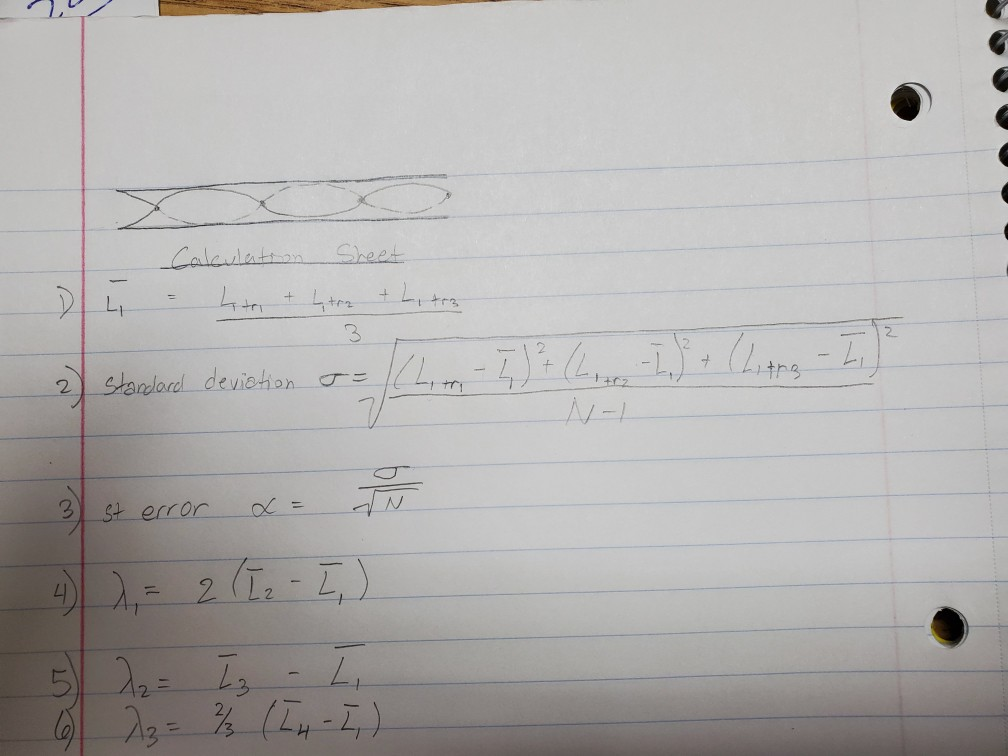 Calculation Sheet
1) L̄₁ = (L₁ tr₁ + L₁ tr₂ + L₁ tr₃) / 3
2) standard deviation σ = √(((L₁ tr₁ - L̄₁)² + (L₁ tr₂ - L̄₁)² + (L₁ tr₃ - L̄₁)²) / (N-1))
3) st error α = σ / √N
4) λ₁ = 2 (L̄₂ - L̄₁)
5) λ₂ = L̄₃ - L̄₁
6) λ₃ = 2/3 (L̄₄ - L̄₁)